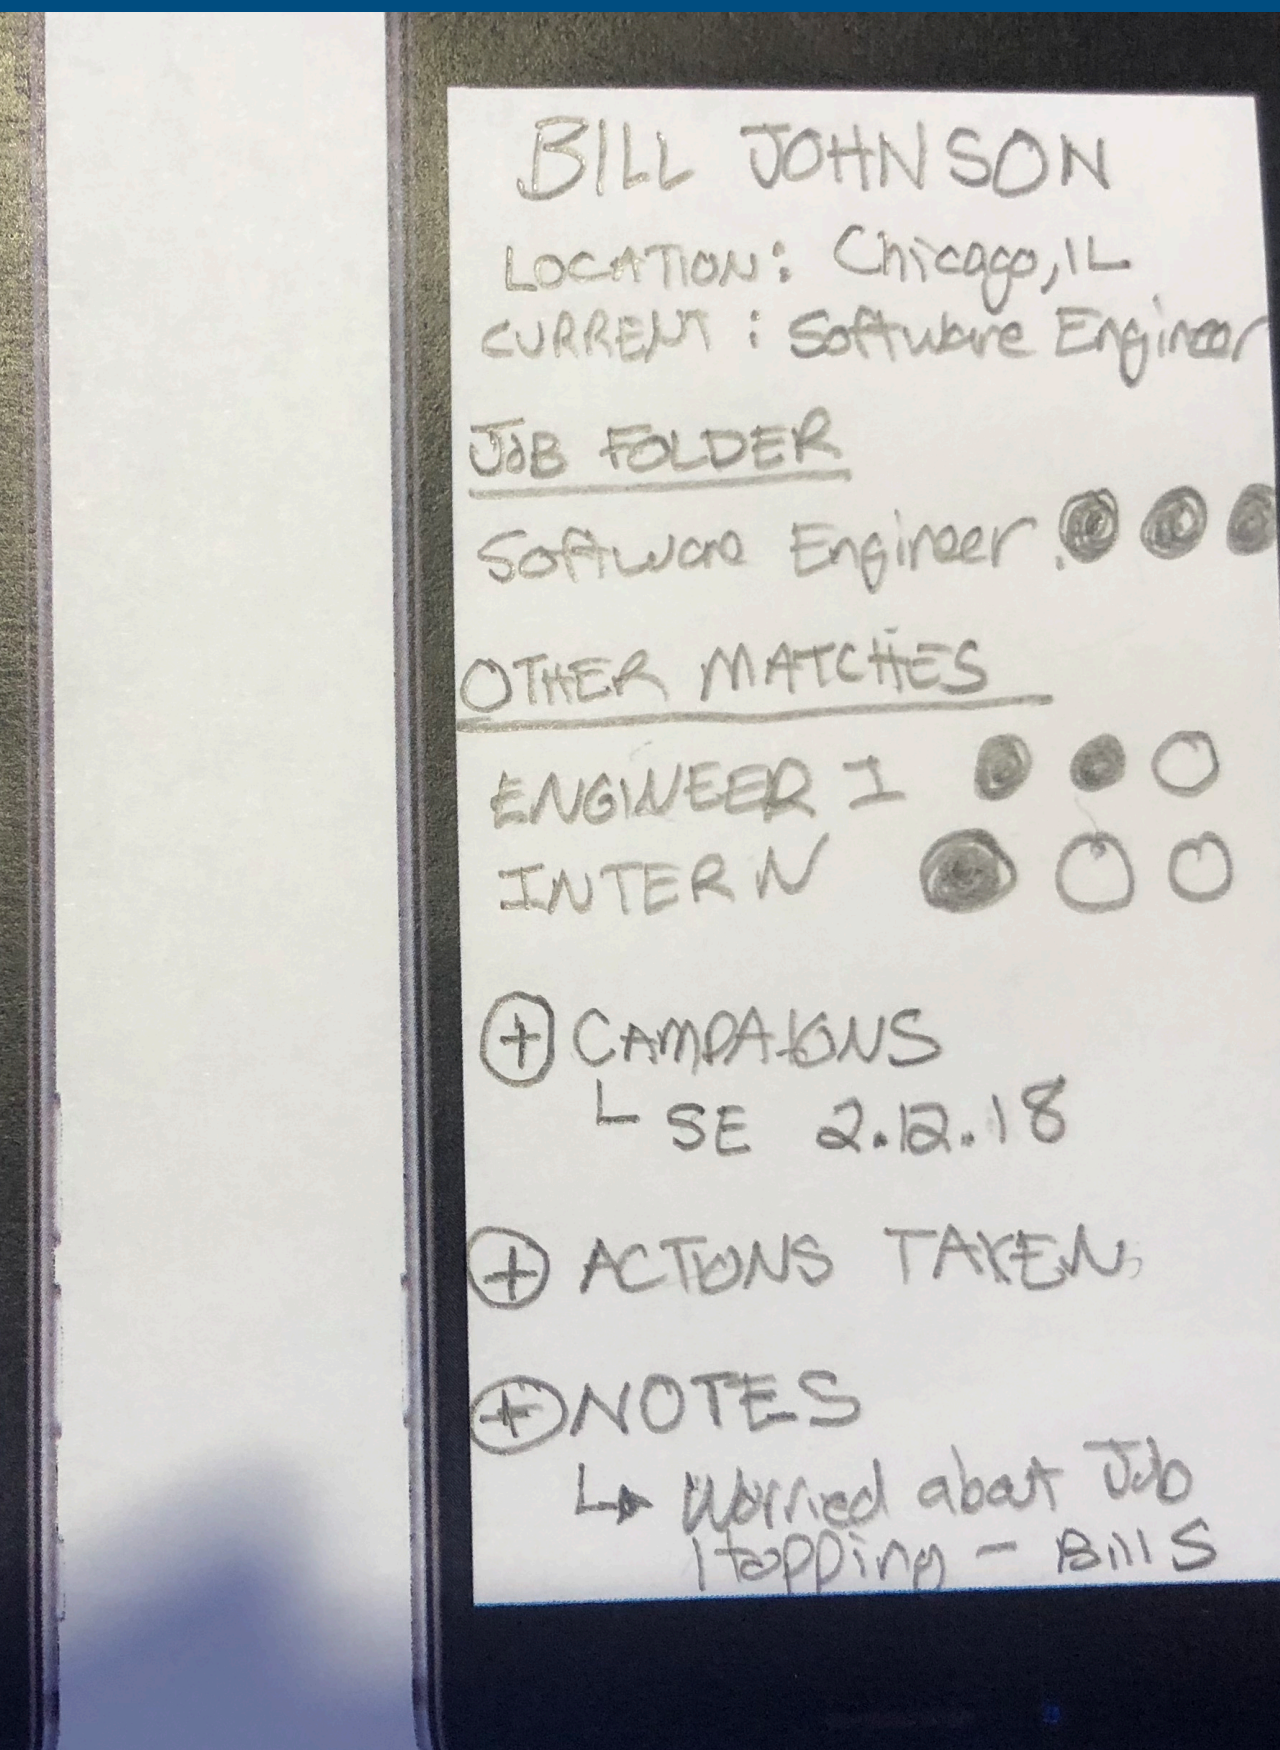 BILL JOHNSON
LOCATION: Chicago, IL
CURRENT: Software Engineer
JOB FOLDER
Software Engineer
OTHER MATCHES
ENGINEER I
INTERN
+ CAMPAIGNS
SE 2.12.18
+ ACTIONS TAKEN
+ NOTES
Worried about Job
Hopping - Bill S